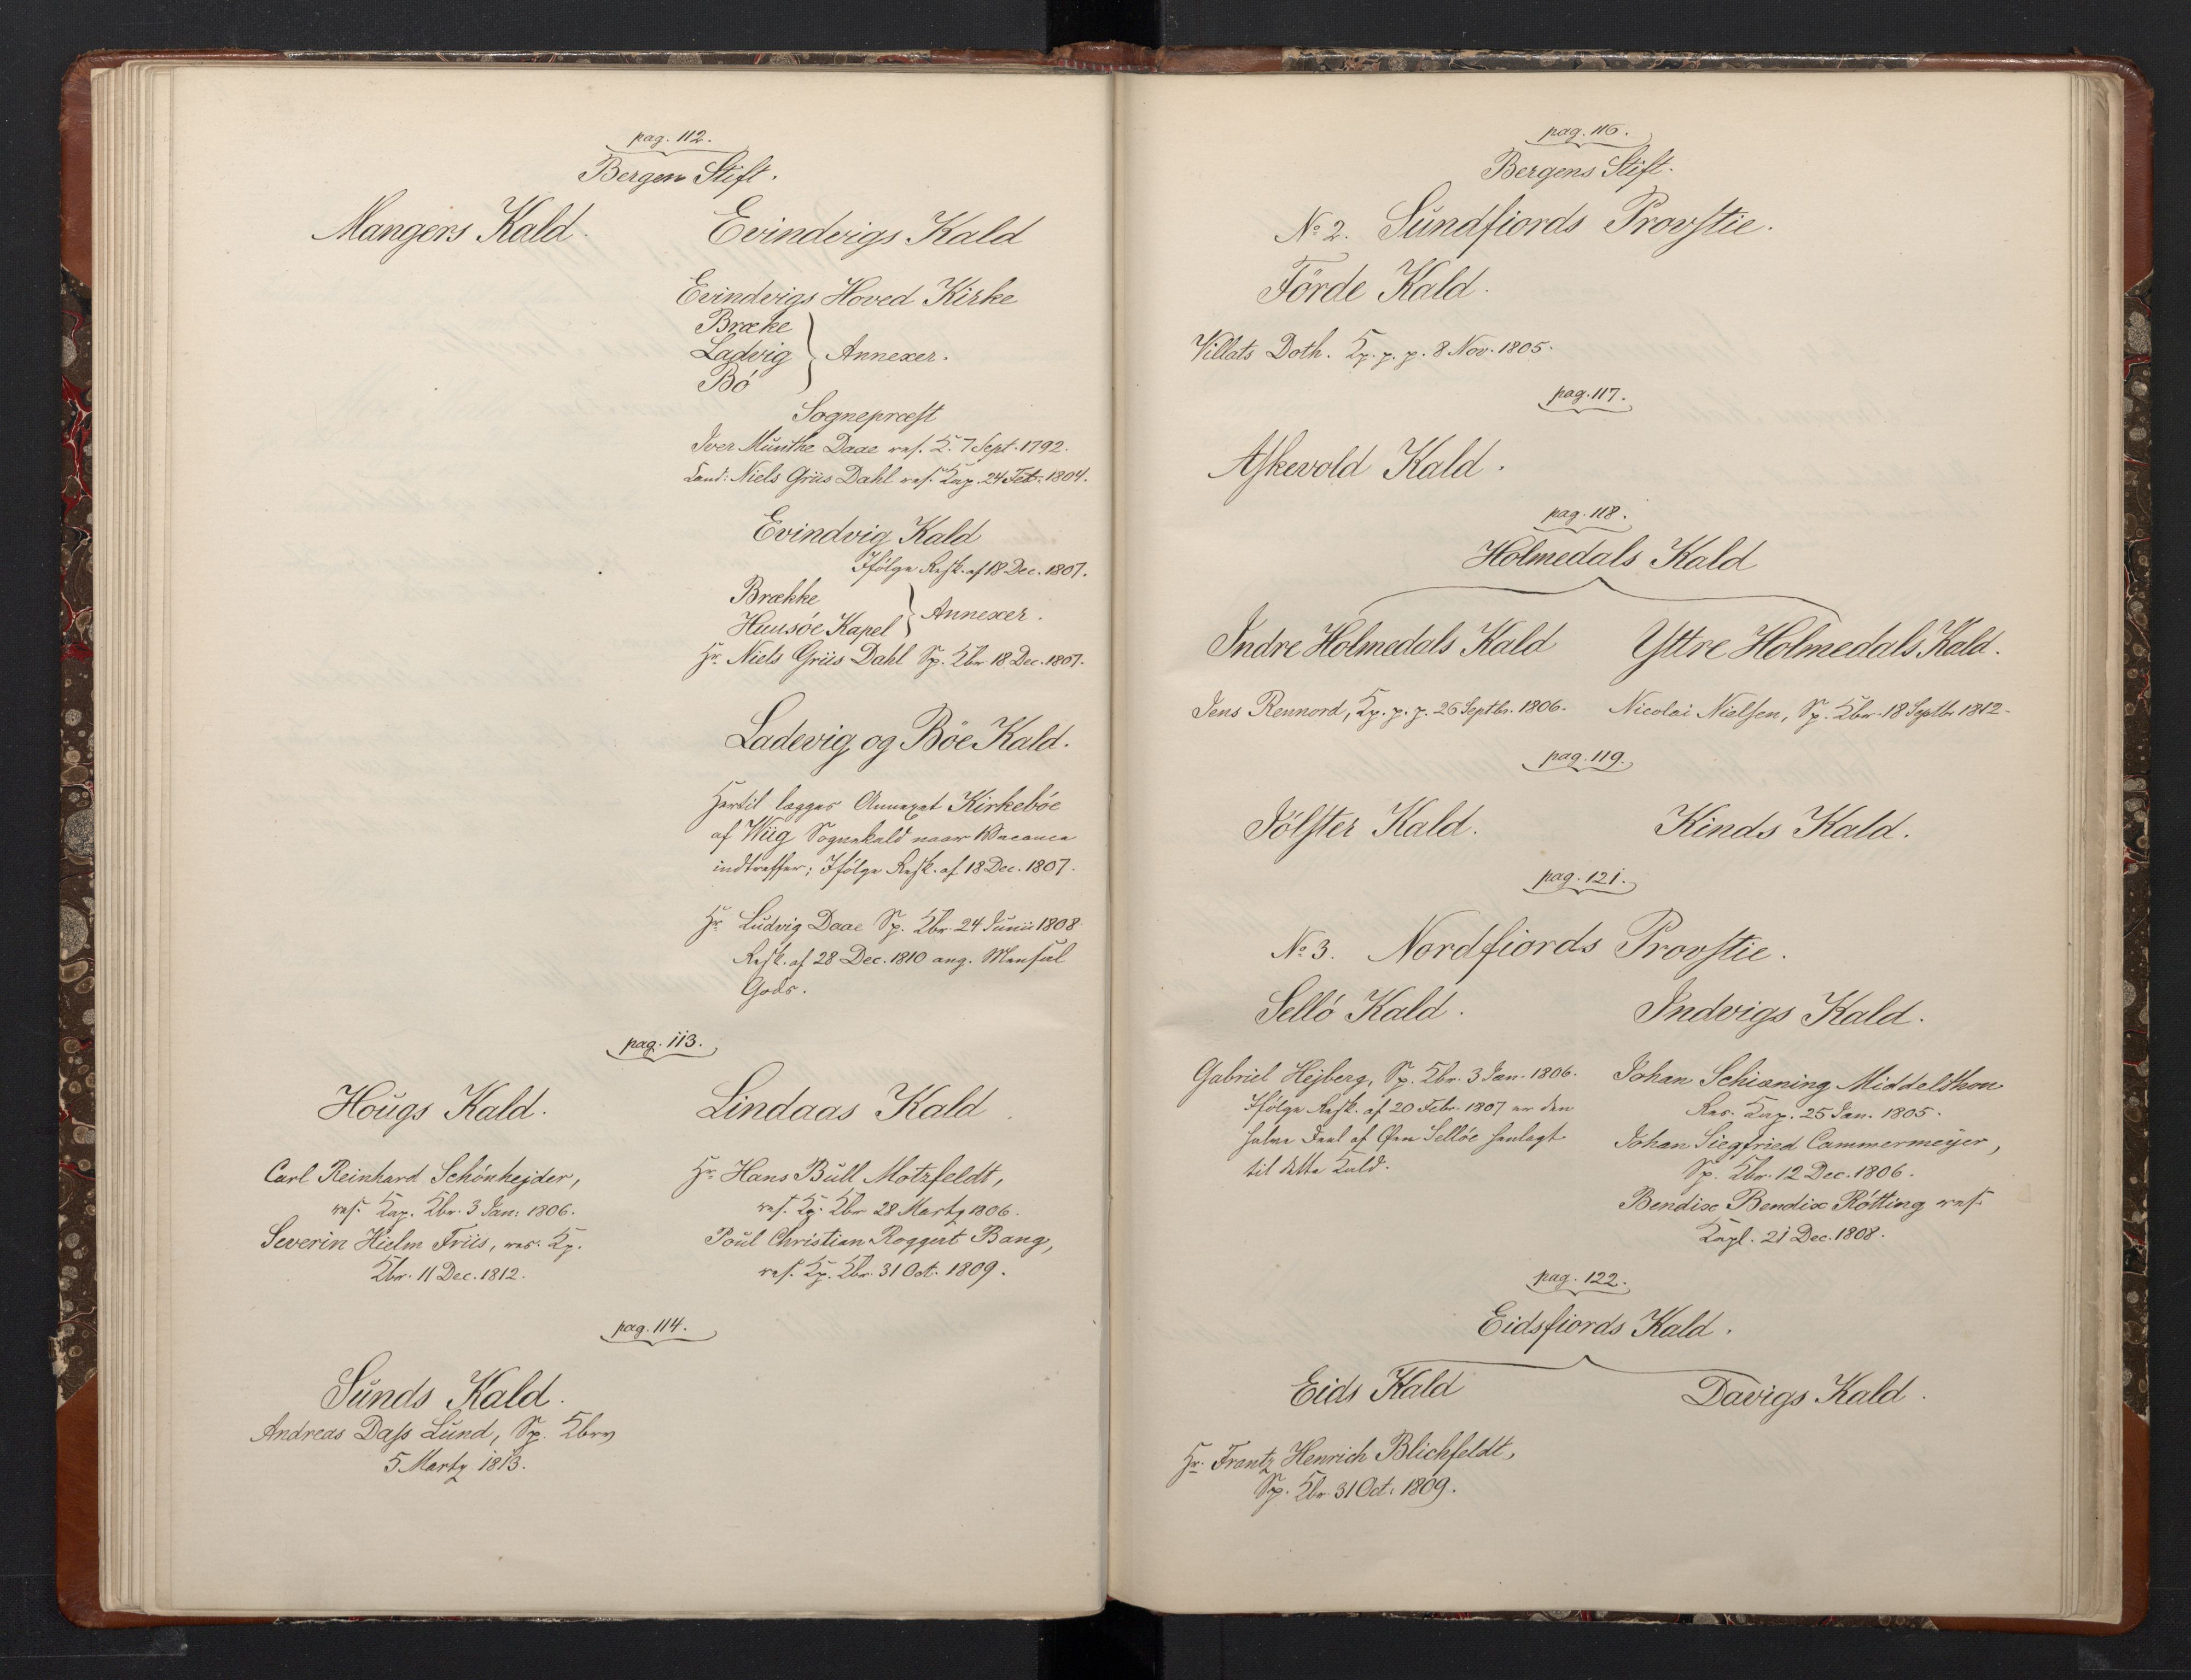 pag. 112.
Bergen Stift.
Mangers Kald.
Evindvigs Kald
Evindvigs Hoved Kirke
Bræke
Ladvig
Bö
Annexer.
Sognepræst
Iver Munthe Daae res. K. 7 Sept. 1792.
Cand: Niels Griis Dahl res. Kap. 24 Feb. 1804.
Evindvig Kald
Ifölge Resk. af 18 Dec. 1807.
Brække
Huusöe Kapel
Annexer.
Hr. Niels Griis Dahl Sp. Kbr. 18 Dec. 1807.
Ladevig og Böe Kald.
Hertil lægges Annexet Kirkeböe
af Wiig Sognekald naar Vacance
indtreffer; Ifölge Resk. af 18 Dec. 1807.
Hr. Ludvig Daae Sp. Kbr. 24 Junii 1808.
Resk. af 28 Dec. 1810 ang. Mensal
Gods.
pag. 113.
Hougs Kald.
Carl Reinhard Schönhejder,
res. Kap. Kbr. 3 Jan: 1806.
Severin Hielm Friis, res. Kp.
Kbr. 11 Dec. 1812.
Lindaas Kald.
Hr. Hans Bull Motzfeldt,
res. Kp. Kbr. 28 Marty 1806.
Poul Christian Roggert Bang,
res. Kp. Kbr. 31 Oct. 1809.
pag. 114.
Sunds Kald.
Andreas Dass Lund, Sp. Kbrv
5 Marty 1813.
pag. 116.
Bergens Stift.
No 2. Sundfiords Provstie.
Förde Kald.
Villats Doth. Kp. p. p. 8 Nov. 1805.
pag. 117.
Askevold Kald.
pag. 118.
Holmedals Kald
Indre Holmedals Kald
Yttre Holmedals Kald.
Jens Rennord, Kp. p. p. 26 Septbr. 1806.
Nicolai Nielsen, Sp. Kbr. 18 Septbr 1812.
pag. 119.
Jölster Kald.
Kinds Kald.
pag. 121.
No 3. Nordfiords Provstie.
Sellö Kald.
Gabriel Hejberg, Sp. Kbr. 3 Jan. 1806.
Ifölge Resk. af 20 Febr. 1807 er den
halve Deel af Øen Sellöe henlagt
til dette Kald.
Indvigs Kald.
Johan Schiøning Middelthon
Res. Kap. 25 Jan. 1805.
Johan Siegfried Cammermeyer,
Sp. Kbr. 12 Dec. 1806.
Bendix Bendix Rötting res.
Kapl. 21 Dec. 1808.
pag. 122.
Eidsfiords Kald.
Eids Kald
Davigs Kald.
Hr. Frantz Henrich Blichfeldt,
Sp. Kbr. 31 Oct. 1809.